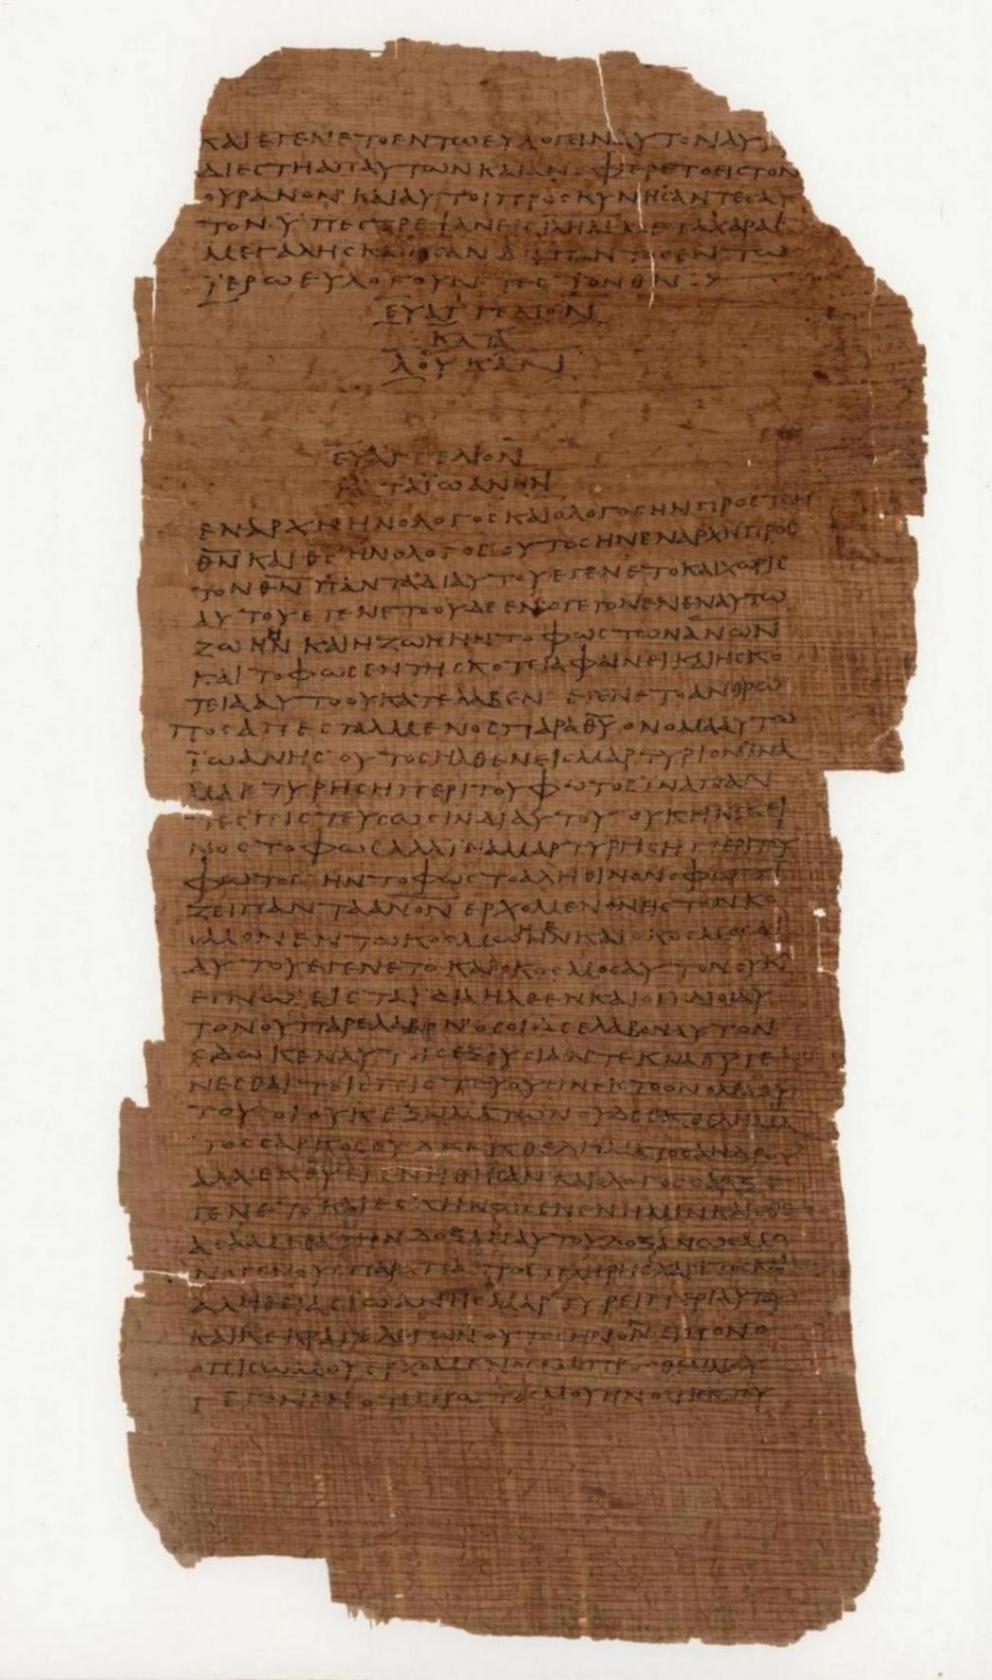 ΚΑΙΕΓΕΝΕΤΟΕΝΤΩΕΥΛΟΓΕΙΝΑΥΤΟΝΑΥ
ΔΙΕΣΤΗΑΠΑΥΤΩΝΚΑΙΑΝΕΦΕΡΕΤΟΕΙΣΤΟΝ
ΟΥΡΑΝΟΝ ΚΑΙΑΥΤΟΙΠΡΟΣΚΥΝΗΣΑΝΤΕΣΑΥ
ΤΟΝ ΥΠΕΣΤΡΕΨΑΝΕΙΣΙΛΗΜΜΕΤΑΧΑΡΑΣ
ΜΕΓΑΛΗΣΚΑΙΗΣΑΝΔΙΑΠΑΝΤΟΣΕΝΤΩ
ΙΕΡΩΕΥΛΟΓΟΥΝΤΕΣΤΟΝΘΝ
ΕΥΑΓΓΕΛΙΟΝ
ΚΑΤΑ
ΛΟΥΚΑΝ
ΕΥΑΓΓΕΛΙΟΝ
ΚΑΤΑΙΩΑΝΗΝ
ΕΝΑΡΧΗΗΝΟΛΟΓΟΣΚΑΙΟΛΟΓΟΣΗΝΠΡΟΣΤΟΝ
ΘΝΚΑΙΘΣΗΝΟΛΟΓΟΣΟΥΤΟΣΗΝΕΝΑΡΧΗΠΡΟΣ
ΤΟΝΘΝΠΑΝΤΑΔΙΑΥΤΟΥΕΓΕΝΕΤΟΚΑΙΧΩΡΙΣ
ΑΥΤΟΥΕΓΕΝΕΤΟΟΥΔΕΕΝΟΓΕΓΟΝΕΝΕΝΑΥΤΩ
ΖΩΗΗΝΚΑΙΗΖΩΗΗΝΤΟΦΩΣΤΩΝΑΝΩΝ
ΚΑΙΤΟΦΩΣΕΝΤΗΣΚΟΤΕΙΑΦΑΙΝΕΙΚΑΙΗΣΚΟ
ΤΕΙΑΑΥΤΟΟΥΚΑΤΕΛΑΒΕΝ ΕΓΕΝΕΤΟΑΝΘΡΩ
ΠΟΣΑΠΕΣΤΑΛΜΕΝΟΣΠΑΡΑΘΥΟΝΟΜΑΑΥΤΩ
ΙΩΑΝΗΣ ΟΥΤΟΣΗΛΘΕΝΕΙΣΜΑΡΤΥΡΙΟΝΙΝΑ
ΜΑΡΤΥΡΗΣΗΠΕΡΙΤΟΥΦΩΤΟΣΙΝΑΠΑΝ
ΤΕΣΠΙΣΤΕΥΣΩΣΙΝΔΙΑΥΤΟΥ ΟΥΚΗΝΕΚΕΙ
ΝΟΣΤΟΦΩΣΑΛΛΙΝΑΜΑΡΤΥΡΗΣΗΠΕΡΙΤΟΥ
ΦΩΤΟΣ ΗΝΤΟΦΩΣΤΟΑΛΗΘΙΝΟΝΟΦΩΤΙ
ΖΕΙΠΑΝΤΑΑΝΟΝΕΡΧΟΜΕΝΟΝΕΙΣΤΟΝΚΟ
ΣΜΟΝΕΝΤΩΚΟΣΜΩΗΝΚΑΙΟΚΟΣΜΟΣΔΙ
ΑΥΤΟΥΕΓΕΝΕΤΟΚΑΙΟΚΟΣΜΟΣΑΥΤΟΝΟΥΚ
ΕΓΝΩ ΕΙΣΤΑΙΔΙΑΗΛΘΕΝΚΑΙΟΙΙΔΙΟΙΑΥ
ΤΟΝΟΥΠΑΡΕΛΑΒΟΝ ΟΣΟΙΔΕΕΛΑΒΟΝΑΥΤΟΝ
ΕΔΩΚΕΝΑΥΤΟΙΣΕΞΟΥΣΙΑΝΤΕΚΝΑΘΥΓΕ
ΝΕΣΘΑΙΤΟΙΣΠΙΣΤΕΥΟΥΣΙΝΕΙΣΤΟΟΝΟΜΑΑΥ
ΤΟΥ ΟΙΟΥΚΕΞΑΙΜΑΤΩΝΟΥΔΕΕΚΘΕΛΗΜΑ
ΤΟΣΣΑΡΚΟΣΟΥΔΕΕΚΘΕΛΗΜΑΤΟΣΑΝΔΡΟΣ
ΑΛΛΕΚΘΥΕΓΕΝΗΘΗΣΑΝΚΑΙΟΛΟΓΟΣΣΑΡΞΕ
ΓΕΝΕΤΟΚΑΙΕΣΚΗΝΩΣΕΝΕΝΗΜΙΝΚΑΙΕΘΕ
ΑΣΑΜΕΘΑΤΗΝΔΟΞΑΝΑΥΤΟΥΔΟΞΑΝΩΣΜΟ
ΝΟΓΕΝΟΥΣΠΑΡΑΠΑΤΡΟΣΠΛΗΡΗΣΧΑΡΙΤΟΣΚΑΙ
ΑΛΗΘΕΙΑΣΙΩΑΝΗΣΜΑΡΤΥΡΕΙΠΕΡΙΑΥΤΟΥ
ΚΑΙΚΕΚΡΑΓΕΛΕΓΩΝΟΥΤΟΣΗΝΟΝΕΙΠΟΝΟ
ΟΠΙΣΩΜΟΥΕΡΧΟΜΕΝΟΣΕΜΠΡΟΣΘΕΝΜΟΥ
ΓΕΓΟΝΕΝΟΤΙΠΡΩΤΟΣΜΟΥΗΝΟΤΙΕΚΤΟΥ